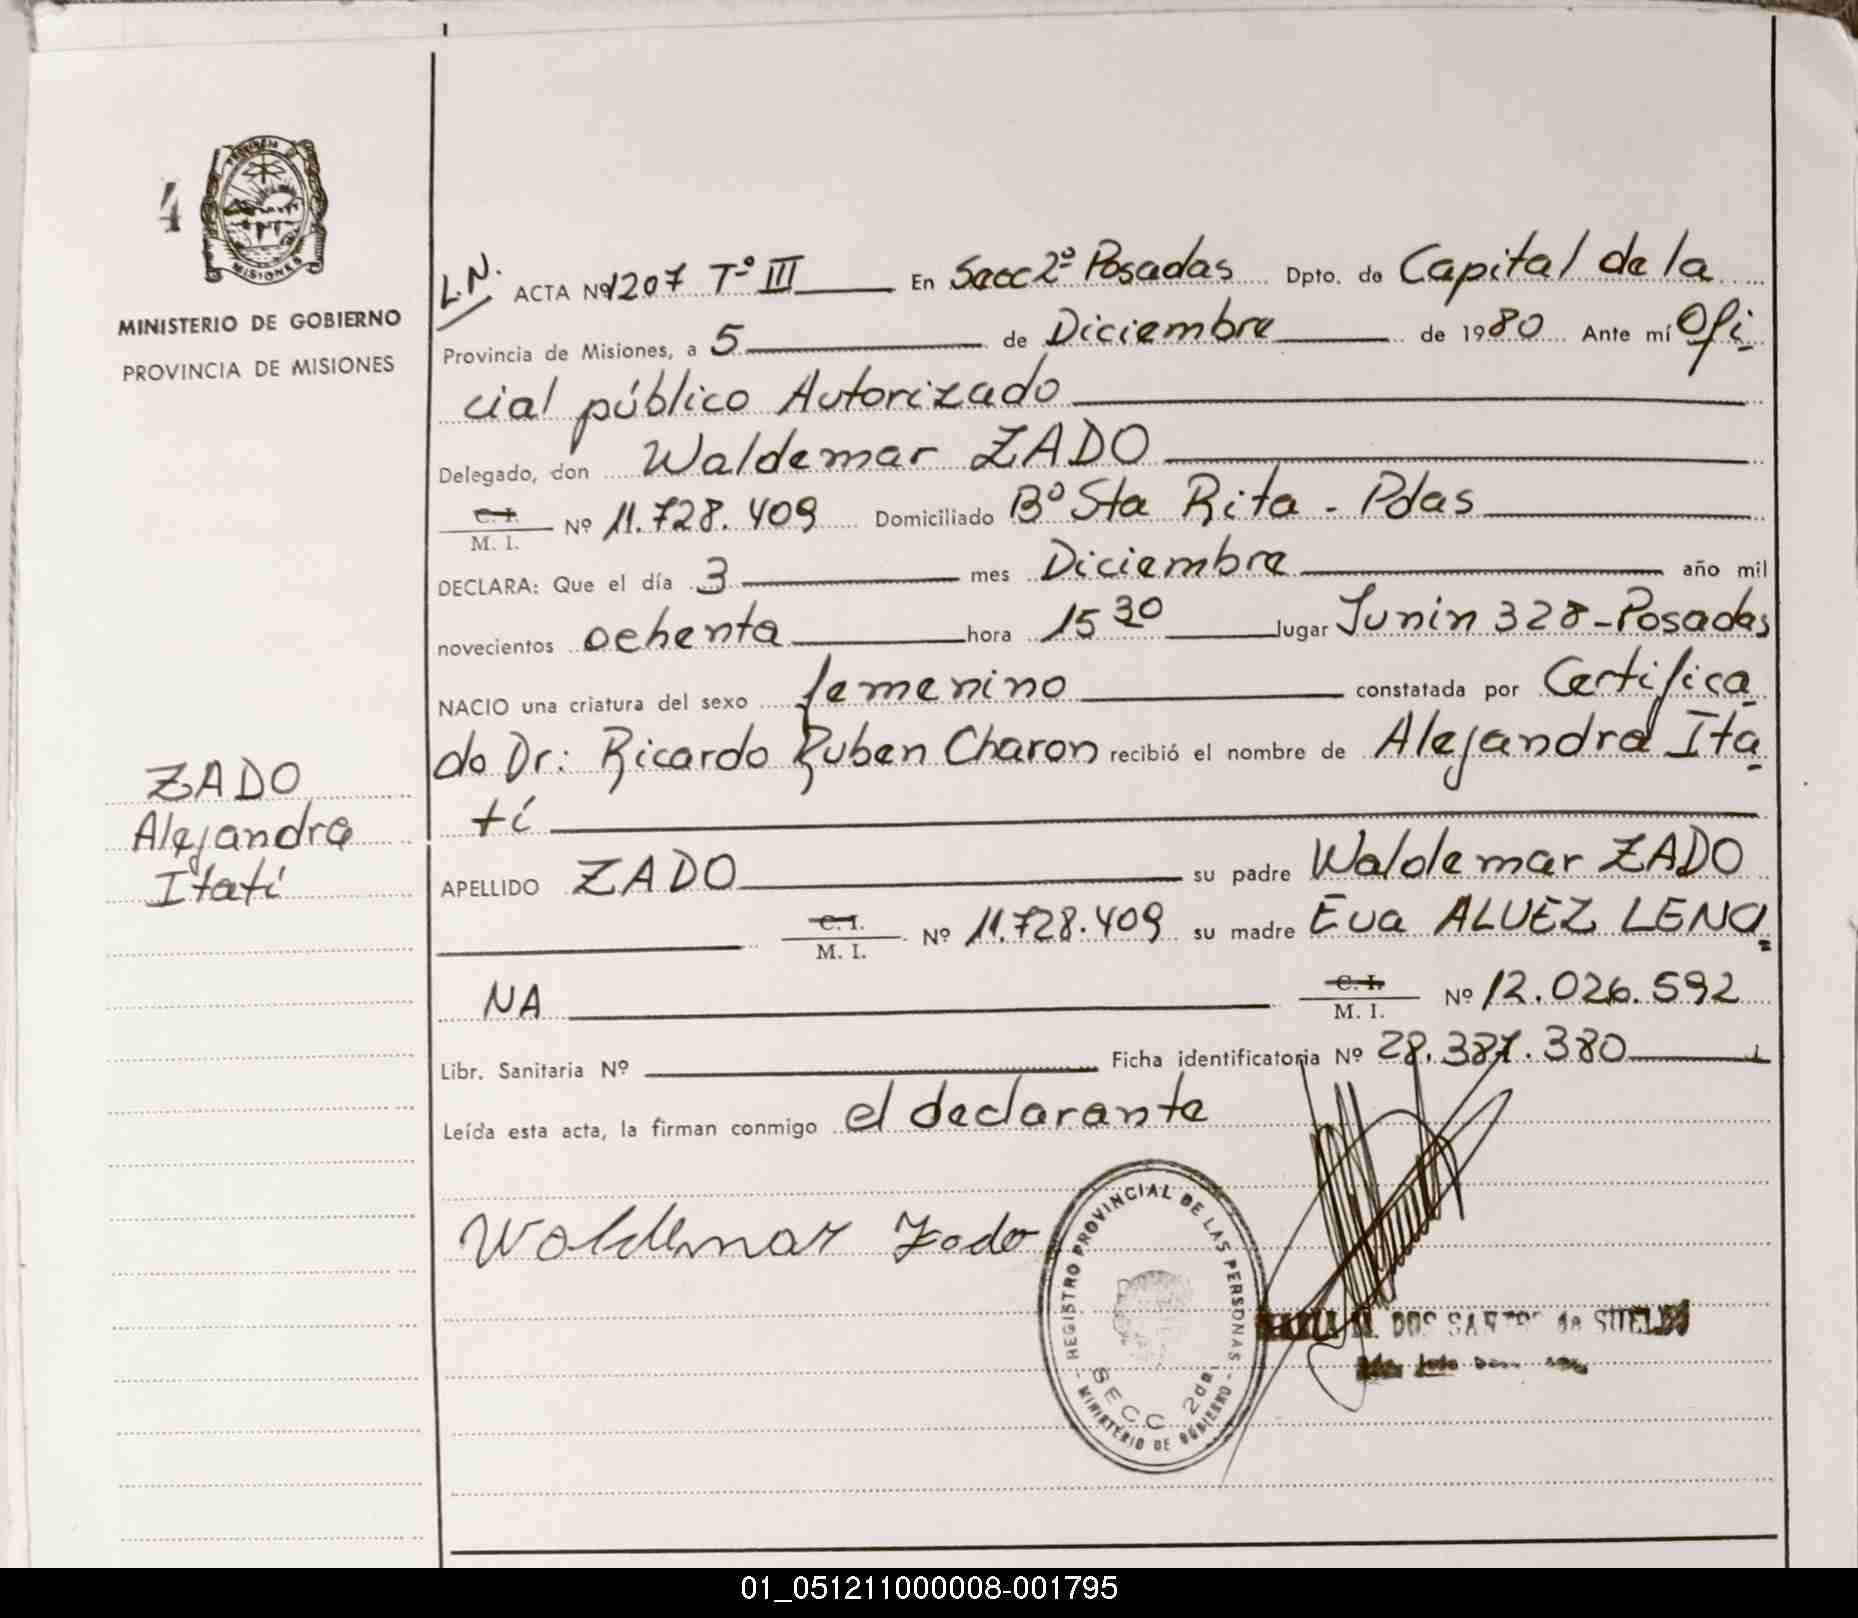 4
PROVINCIA DE
MISIONES
MINISTERIO DE GOBIERNO
PROVINCIA DE MISIONES
ZADO
Alejandra
Itatí
L.N. ACTA Nº 1207 Tº III En Secc 2º Posadas Dpto. de Capital de la
Provincia de Misiones, a 5 de Diciembre de 1980 Ante mí Ofi-
cial público Autorizado
Delegado, don Waldemar ZADO
C. I.
M. I. Nº 11.728.409 Domiciliado Bº Sta Rita - Pdas
DECLARA: Que el día 3 mes Diciembre año mil
novecientos ochenta hora 15 30 lugar Junin 328-Posadas
NACIO una criatura del sexo femenino constatada por Certifica-
do Dr: Ricardo Ruben Charon recibió el nombre de Alejandra Ita-
tí
APELLIDO ZADO su padre Waldemar ZADO
C. I.
M. I. Nº 11.728.409 su madre Eva ALVEZ LENCI=
NA C. I.
M. I. Nº 12.026.592
Libr. Sanitaria Nº Ficha identificatoria Nº 28.387.380
Leída esta acta, la firman conmigo el declarante
Waldemar Zado
REGISTRO PROVINCIAL DE LAS PERSONAS
SECC 2da.
- MINISTERIO DE GOBIERNO -
DOS SANTOS de SUELDO
01_051211000008-001795